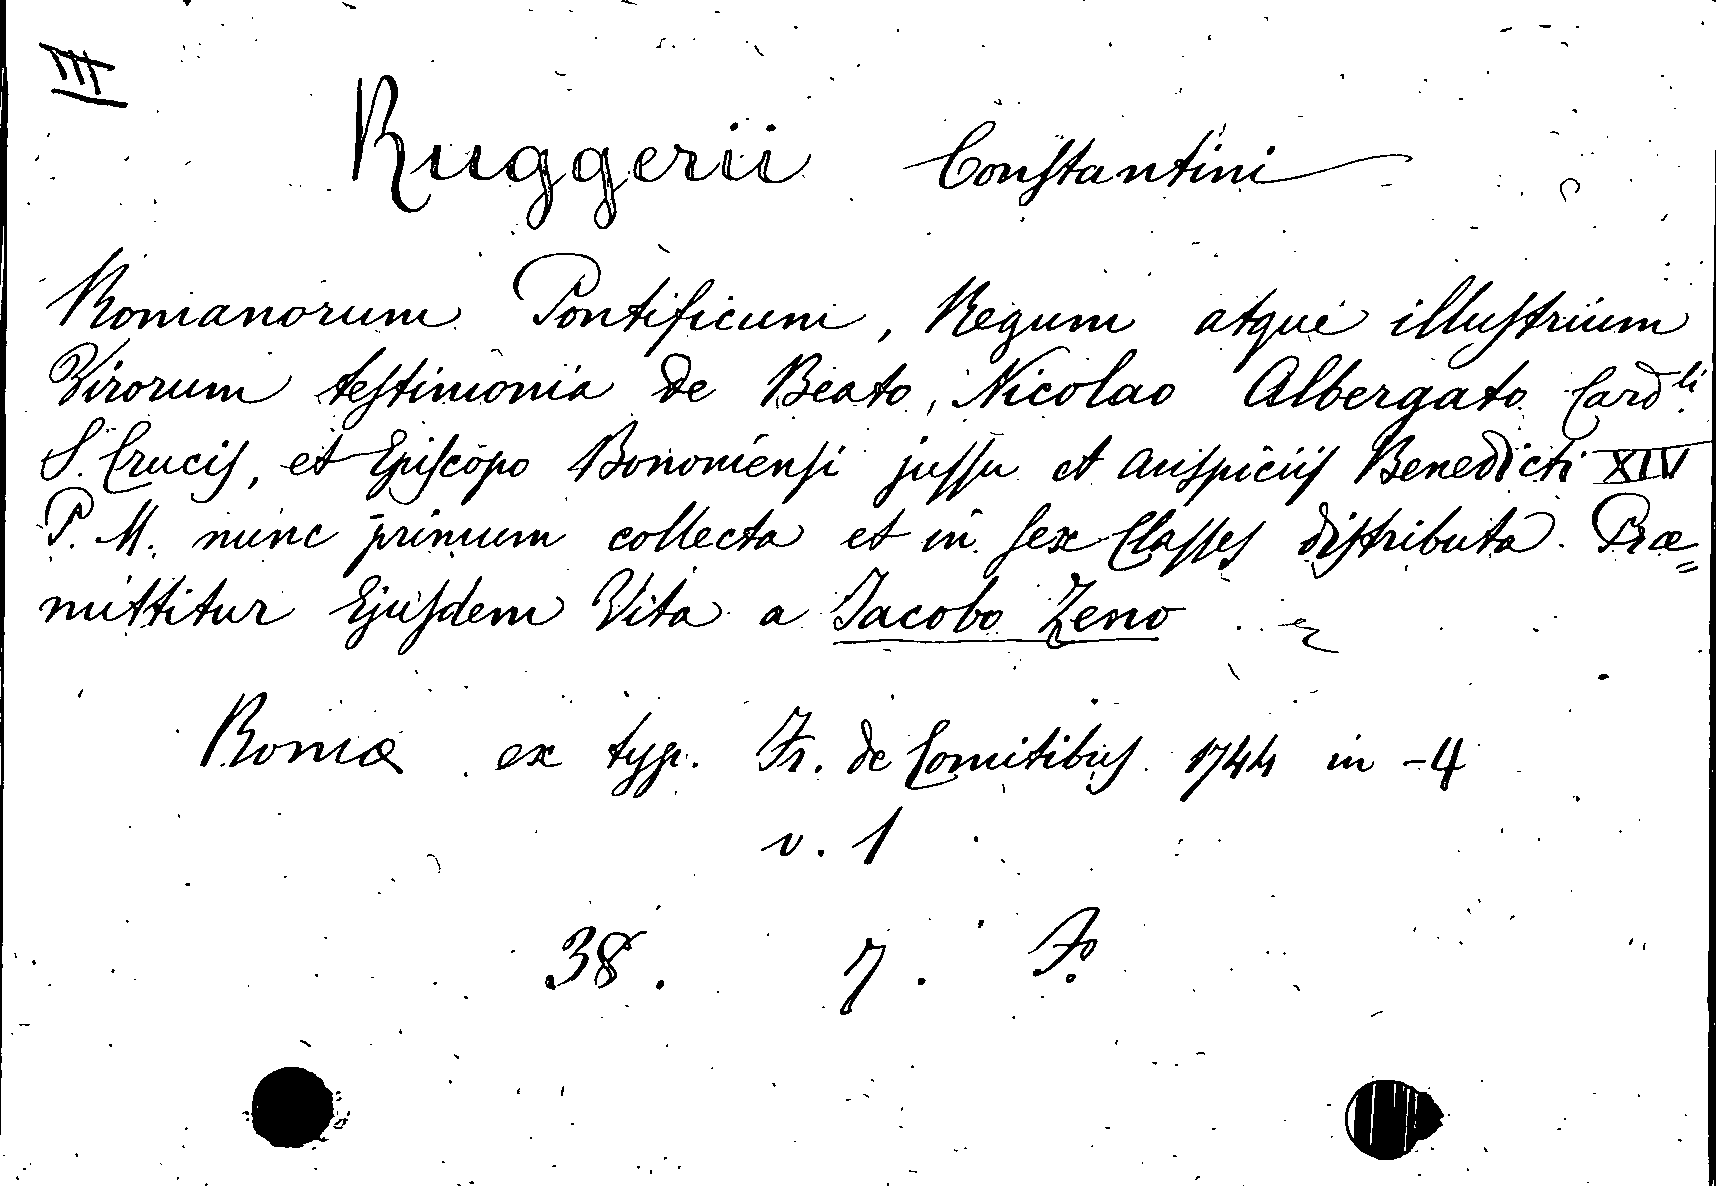 III
Ruggerii Constantini
Romanorum Pontificum, Regum atque illustrium
Virorum testimonia de Beato, Nicolao Albergato Card.li
S. Crucis, et Episcopo Bononiensi jussu et auspiciis Benedicti XIV
P. M. nunc primum collecta et in sex Classes distributa. Præ=
mittitur Ejusdem Vita a Jacobo Zeno
Romæ ex typ. Fr. de Comitibus 1744 in -4
v. 1
38. 7.